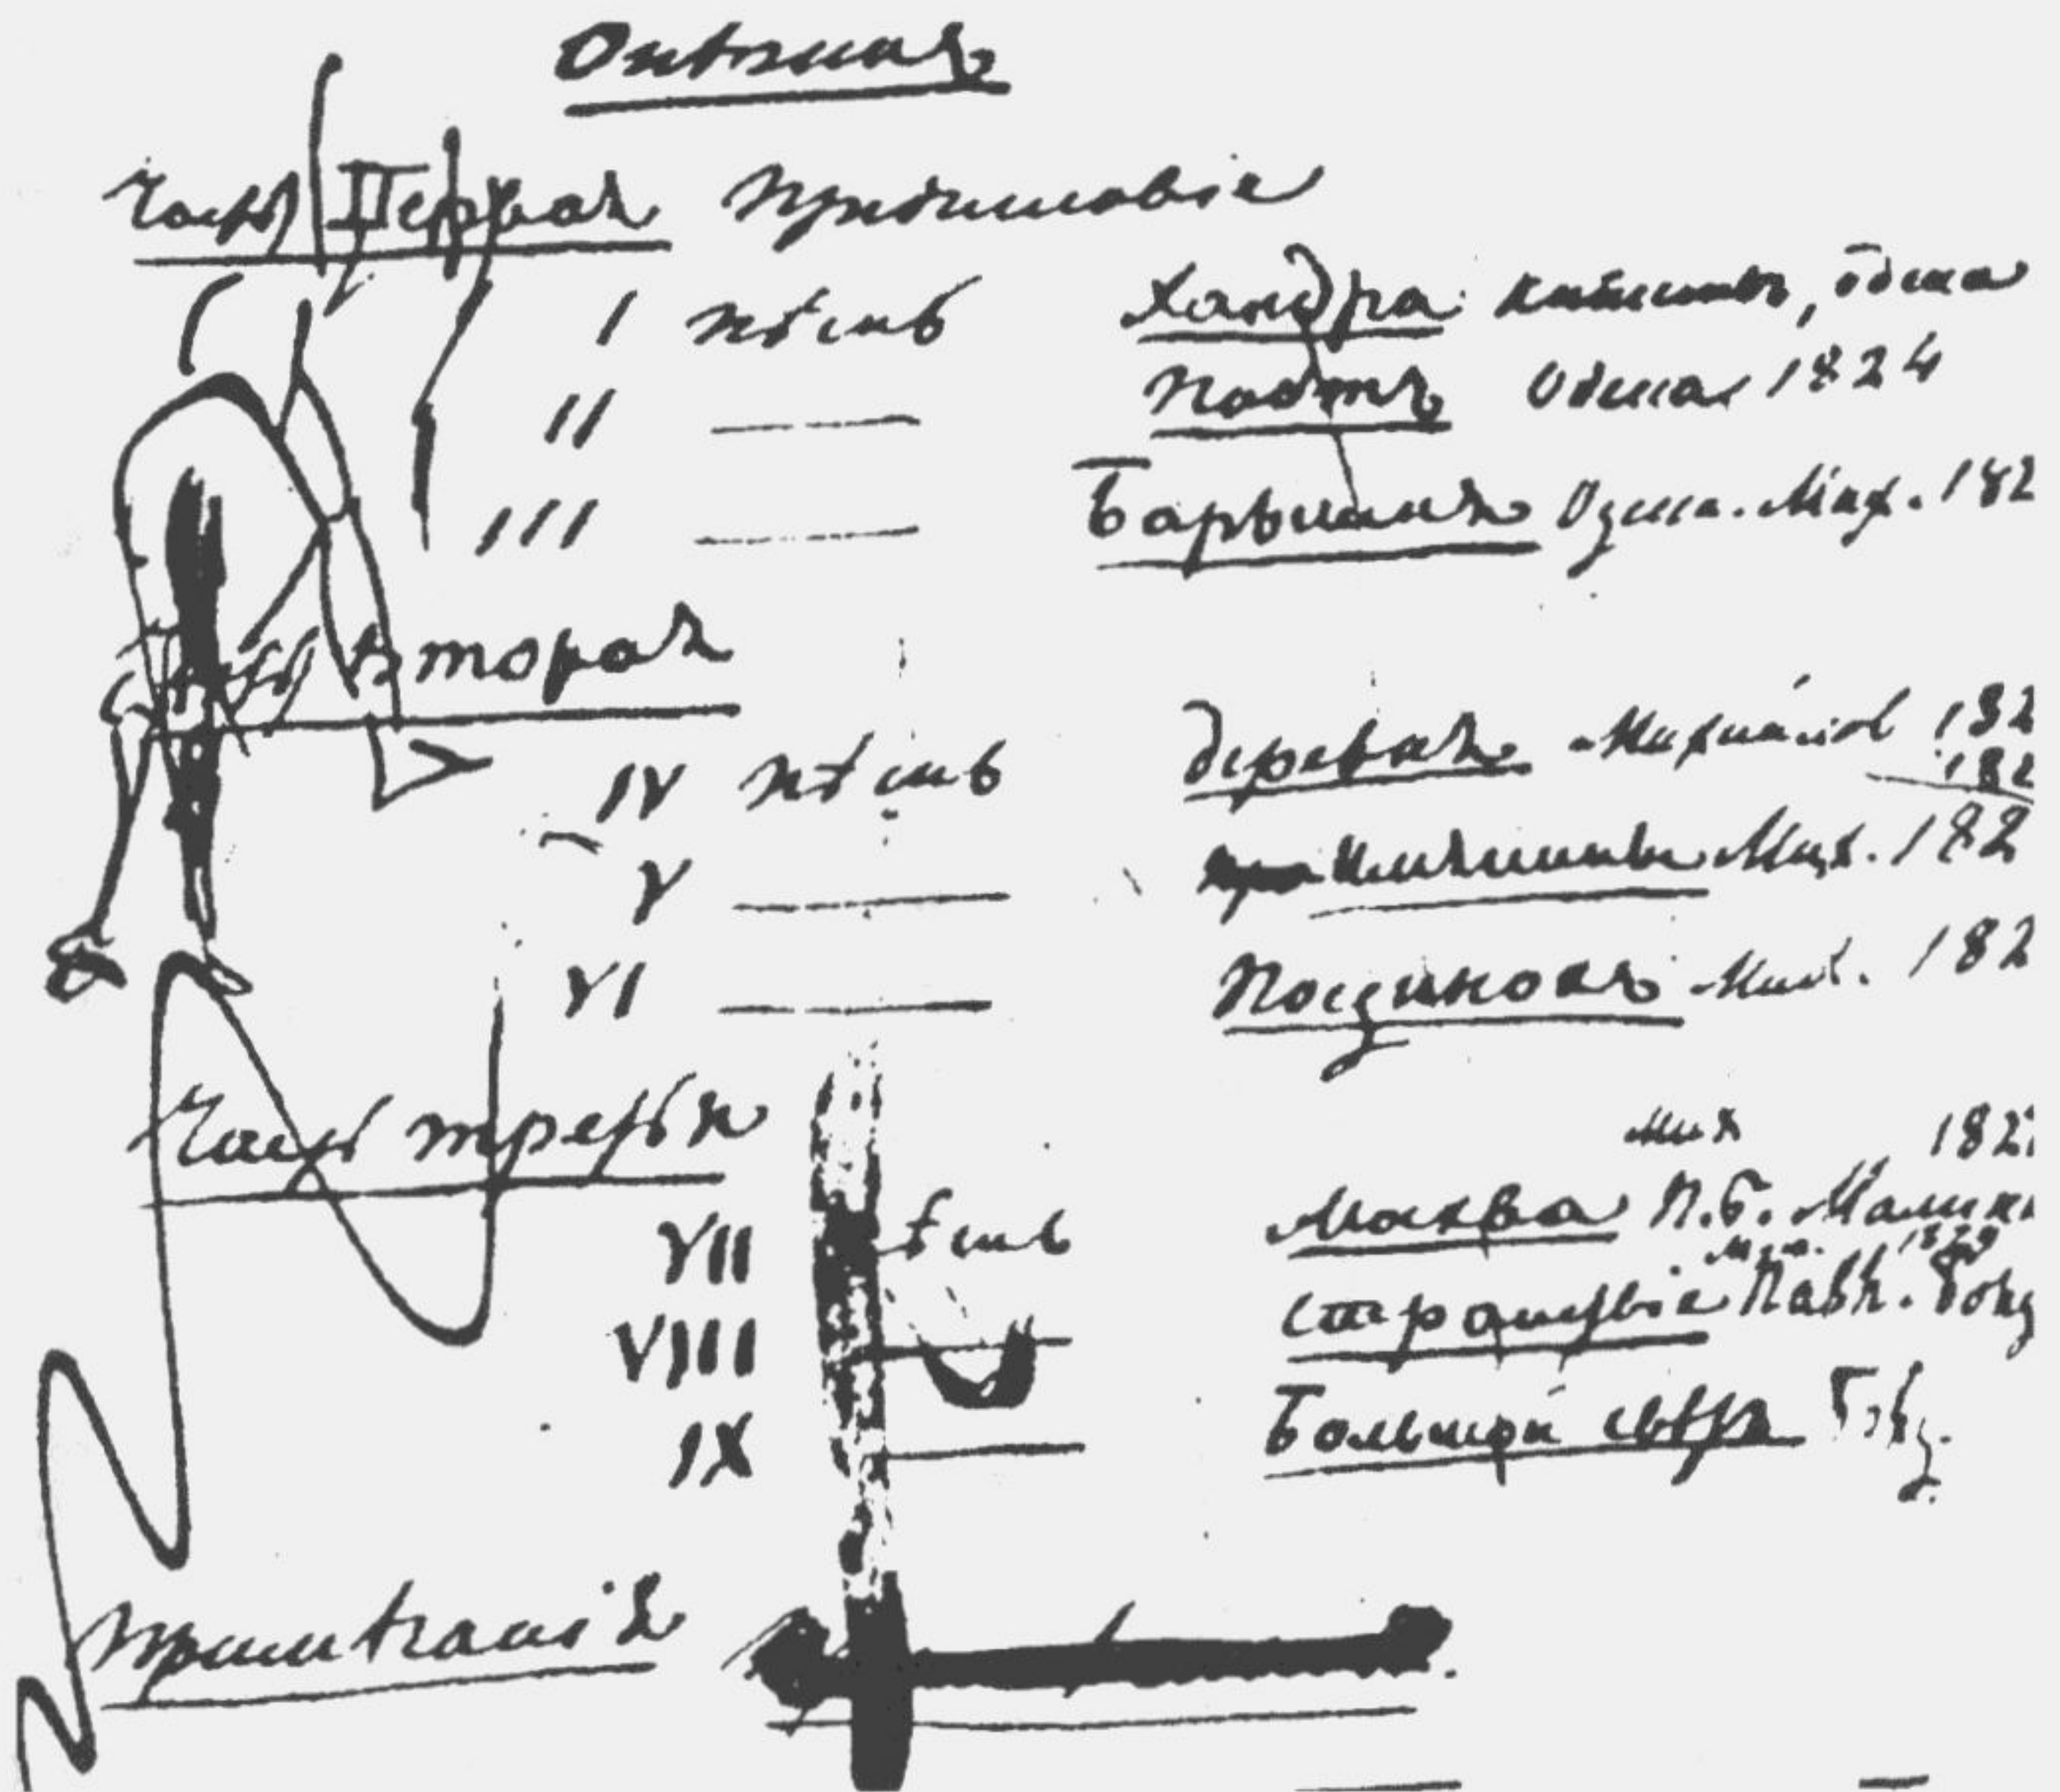 Онѣгинъ
Часть Первая Предисловіе
I пѣснь Хандра Кишиневъ, Одесса
II Поэтъ Одесса 1824
III Барышня Одесса. Мих. 182
Часть Вторая
IV пѣснь Деревня Михайлов 182
182
V Имянины Мих. 182
VI Поединокъ Мих. 182
Часть третья
Мих 182
VII пѣснь Москва П.Б. Малинн
1829
VIII Странствіе Павл. Болд
IX Большой свѣтъ Болд.
Примѣчанія